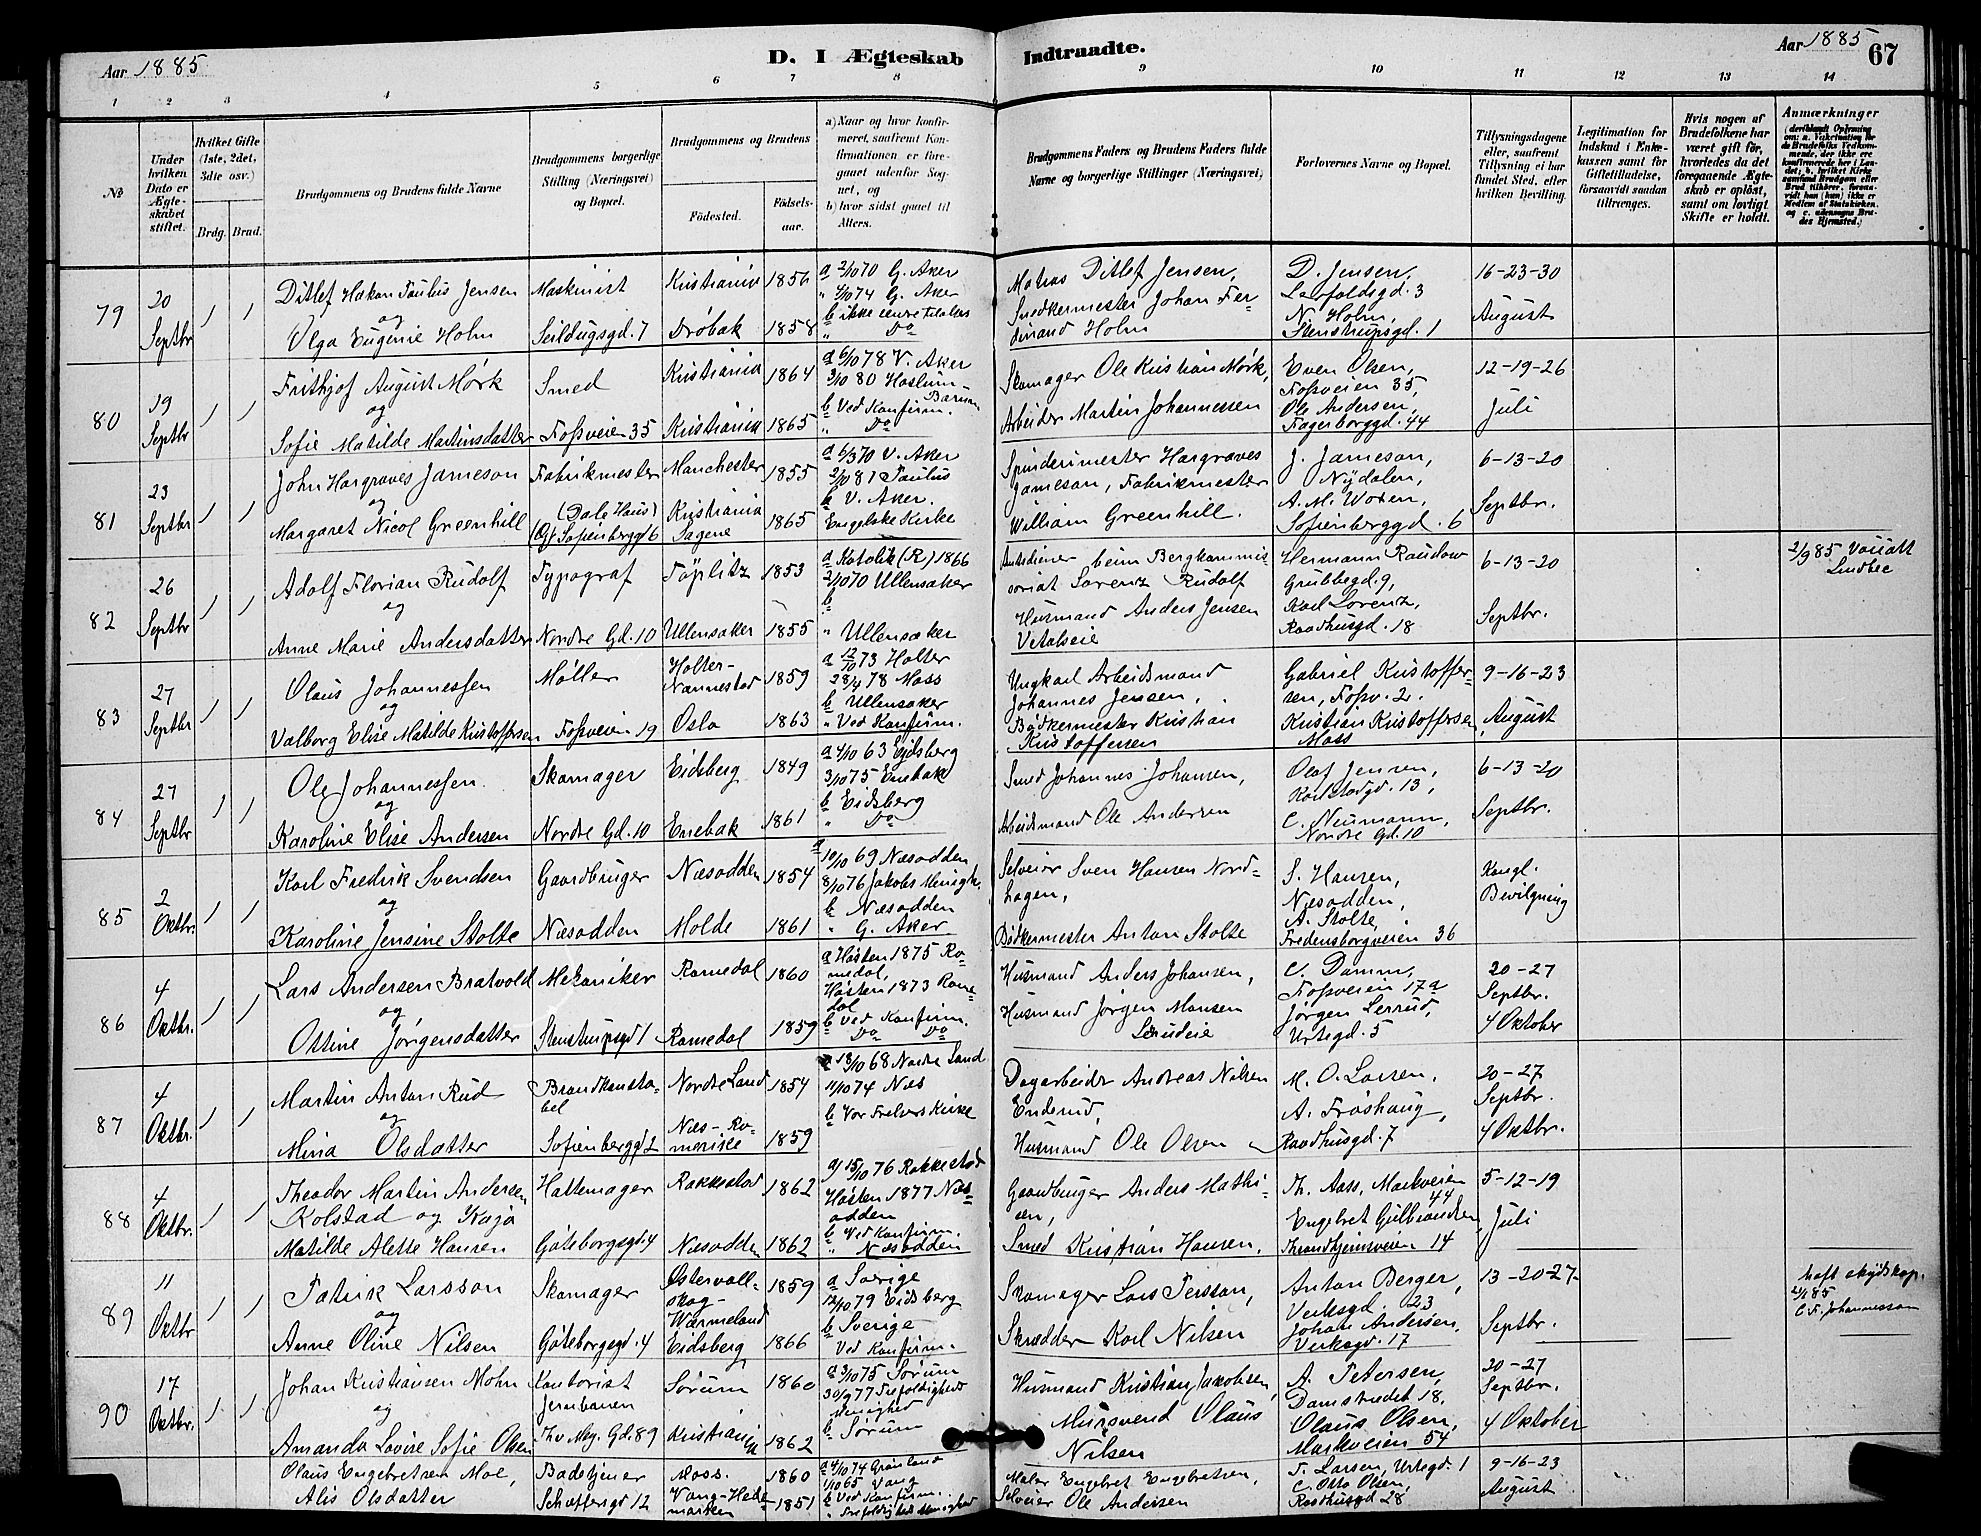 Aar 1885
D. I Ægteskab Indtraadte.
Aar 1885
67
1 2 3 4 5 6 7 8 9 10 11 12 13 14
№
Under hvilken Dato er Ægteskabet stiftet.
Hvilket Gifte (1ste, 2det, 3die osv.)
Brdg. Brud.
Brudgommens og Brudens fulde Navne
Brudgommens borgerlige Stilling (Næringsvei) og Bopæl.
Brudgommens og Brudens
Fødested.
Fødselsaar.
a) Naar og hvor konfirmeret, saafremt Konfirmationen er foregaaet udenfor Sognet, og
b) hvor sidst gaaet til Alters.
Brudgommens Faders og Brudens Faders fulde Navne og borgerlige Stillinger (Næringsvei)
Forlovernes Navne og Bopæl.
Tillysningsdagene eller, saafremt Tillysning ei har fundet Sted, efter hvilken Bevilling.
Legitimation for Indskud i Enkekassen samt for Giftetilladelse, forsaavidt saadan tiltrænges.
Hvis nogen af Brudefolkene har været gift før, hvorledes da det foregaaende Ægteskab er opløst, samt om lovligt Skifte er holdt.
Anmærkninger
79
20 Septbr
1 1
Ditlef Hakon Paulus Jensen
og
Olga Eugenie Holm
Maskinist
Seildugsgd. 7
Kristiania 1856
Drøbak 1858
a 2/10 70 G. Aker
" 4/10 74 G. Aker
b ikke endnu tilalters
" Do
Matros Ditlef Jensen,
Snedkermester Johan Ferdinand Holm
D. Jensen,
Leopoldsgd. 3
N. Holm,
Stenstrupsgd. 1
16-23-30
August
80
19 Septbr
1 1
Frithjof August Mørk
og
Sofie Matilde Martinsdatter
Smed
Fossveien 35
Kristiania 1864
Kristiania 1865
a 6/10 78 V. Aker
3/10 80 Haslum-Bærum
b Ved Konfirm.
" Do
Skomager Ole Kristian Mørk,
Arbeider Martin Johannessen
Even Olsen,
Fossveien 35,
Ole Andersen,
Fagerborggd. 44
12-19-26
Juli
81
23 Septbr
1 1
John Hargraves Jameson
og
Margaret Nicol Greenhill
Fabrikmester
(Dale Haus)
Sofienberggd 6
Manchester 1855
Kristiania Sagene 1865
a 6/3 70 V. Aker
2/10 81 Paulus
b V. Aker.
Engelske Kirke
Spinderimester Hargraves Jameson, Fabrikmester
William Greenhill.
J. Jameson,
Nydalen,
A. M. Woxen,
Sofienberggd. 6
6-13-20
Septbr.
82
26 Septbr
1 1
Adolf Florian Rudolf
og
Anne Marie Andersdatter
Typograf
Nordre Gd. 10
Töplitz 1853
Ullensaker 1855
a Katolik (R) 1866
2/10 70 Ullensaker
b
" Ullensaker
Amtsdiener beim Bergkommissoriat Lorenz Rudolf
Husmand Anders Jensen
Vetalseie
Hermann Raudow
Grubbegd. 9,
Karl Lorenz,
Raadhusgd. 18
6-13-20
Septbr.
2/9 85
83
27 Septbr
1 1
Olaus Johannessen
og
Valborg Elise Matilde Kristoffersen
Møller
Fossveien 19
Holter-Nannestad 1859
Oslo 1863
a 12/10 73 Holter
28/4 78 Moss
b Ullensaker
" Ved Konfirm.
Ungkarl Arbeidsmand
Johannes Jensen,
Bødkermester Kristian
Kristoffersen
Gabriel Kristoffersen, Fossv. 2.
Kristian Kristoffersen,
Moss
9-16-23
August
84
27 Septbr
1 1
Ole Johannessen.
og
Karoline Elise Andersen
Skomager
Nordre Gd. 10
Eidsberg 1849
Enebak 1861
a 4/10 63 Eidsberg
3/10 75 Enebak
b Eidsberg
" Do
Smed Johannes Johansen,
Arbeidsmand Ole Andersen
Olaf Jensen,
Karlstadgd. 13,
C. Neumann,
Nordre Gd. 10
6-13-20
Septbr.
85
2 Oktbr.
1 1
Karl Fredrik Svendsen
og
Karoline Jensine Stolte
Gaardbruger
Næsodden
Næsodden 1854
Molde 1861
a 10/10 69 Næsodden
8/10 76 Jakobs Menigh.
b Næsodden
" G. Aker
Selveier Sven Hansen Nordhagen,
Bødkermester Anton Stolte
S. Hansen,
Næsodden,
A. Stolte,
Fredensborgveien 36
Kongl.
Bevilgning
86
4 Oktbr.
1 1
Lars Andersen Bratvold
og
Ottine Jørgensdatter
Mekaniker
Stenstrupsgd 1
Romedal 1860
Romedal 1859
a Høsten 1875 Romedal,
Høsten 1873 Romedal
b Ved Konfirm.
Do Do
Husmand Anders Johansen,
Husmand Jørgen Monsen
Lerudeie
C. Damm,
Fossveien 17 a
Jørgen Lerrud,
Urtegd. 5
20-27
Septbr.
4 Oktober
87
4 Oktbr.
1 1
Martin Anton Rud
og
Mina Olsdatter
Brandkonstabel
Sofienberggd 2
Nordre Land 1854
Næs-Romerike 1859
a 18/10 68 Nordre Land
11/10 74 Næs
b Vor Frelsers Kirke
Dagarbeider Andreas Nilsen
Enderud,
Husmand Ole Olsen
M. O. Larsen,
A. Frøshaug,
Raadhusgd. 7
20-27
Septbr.
4 Oktbr.
88
4 Oktbr.
1 1
Theodor Martin Andersen
Kolstad og Kaja
Matilde Alette Hansen
Hattemager
Göteborggd. 4
Rakkestad 1862
Næsodden 1862
a 15/10 76 Rakkestad
Høsten 1877 Næsodden
b Ved Konfirm.
" Næsodden
Gaardbruger Anders Mathisen,
Smed Kristian Hansen,
Th. Aass, Markveien 44
Engebret Gulbrandsen,
Throndhjemsveien 14
5-12-19
Juli
89
11 Oktbr
1 1
Patrik Larsson
og
Anne Oline Nilsen
Skomager
Göteborgsgd. 4
Östervallskog-Wærmeland 1859
Eidsberg 1866
a Sverige
12/10 79 Eidsberg
b Sverige
Ved Konfirm.
Skomager Lars Persson,
Skrædder Karl Nilsen
Anton Berger,
Verksgd. 23
Johan Andersen,
Verksgd. 17
13-20-27
Septbr.
C. F. Johannesson
90
17 Oktbr.
1 1
Johan Kristiansen Mohn
og
Amanda Lovise Sofie Olsen
Kontorist
Jernbanen
Thv. Mey. Gd. 89
Sørum 1860
Kristiania 1862
a 3/10 75 Sørum
30/9 77 Trefoldigheds Menighed
b Sørum
Husmand Kristian Jakobsen,
Mursvend Olaus
Nilsen
A. Petersen,
Damstrædet 18,
Olaus Olsen,
Markveien 54
20-27
Septbr.
4 Oktober
Olaus Engebretsen Moe,
Alis Olsdatter
Badetjener
Schæffersgd 12
Moss. 1860
Vang-Hedemarken 1851
a 4/10 74 Grønland
1/10 65 Vang
b Ved Konfirm.
" Trefoldigheds Menighed
Maler Engebret Engebretsen,
Selveier Ole Andersen
T. Larsen, Urtegd. 1
C. Otto Olsen,
Raadhusgd 28
9-16-23
August